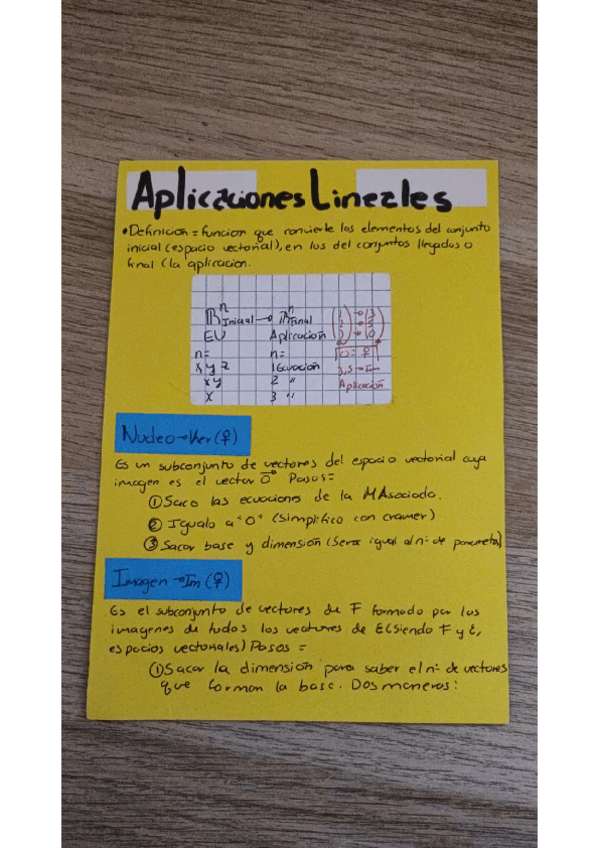 Aplicaciones Lineales
•Definicion = funcion que convierte los elementos del conjunto
inicial (espacio vectorial), en los del conjuntos llegados o
final (la aplicacion.
ℝⁿ Inicial → ℝⁿ Final
EV Aplicación
n= n=
x y z 1 Ecuación
x y 2 "
x 3 "
3,5→Im
Aplicación
Nucleo→Ker(φ)
Es un subconjunto de vectores del espacio vectorial cuya
imagen es el vector 0⃗ Pasos=
① Saco las ecuaciones de la MAsociada.
② Igualo a "0" (simplifico con cramer)
③ Sacar base y dimensión (Sera igual al nº de parametros)
Imagen→Im(φ)
Es el subconjunto de vectores de F formado por las
imagenes de todos los vectores de E(siendo F y E,
espacios vectoriales) Pasos =
① Sacar la dimensión para saber el nº de vectores
que forman la base. Dos maneras: